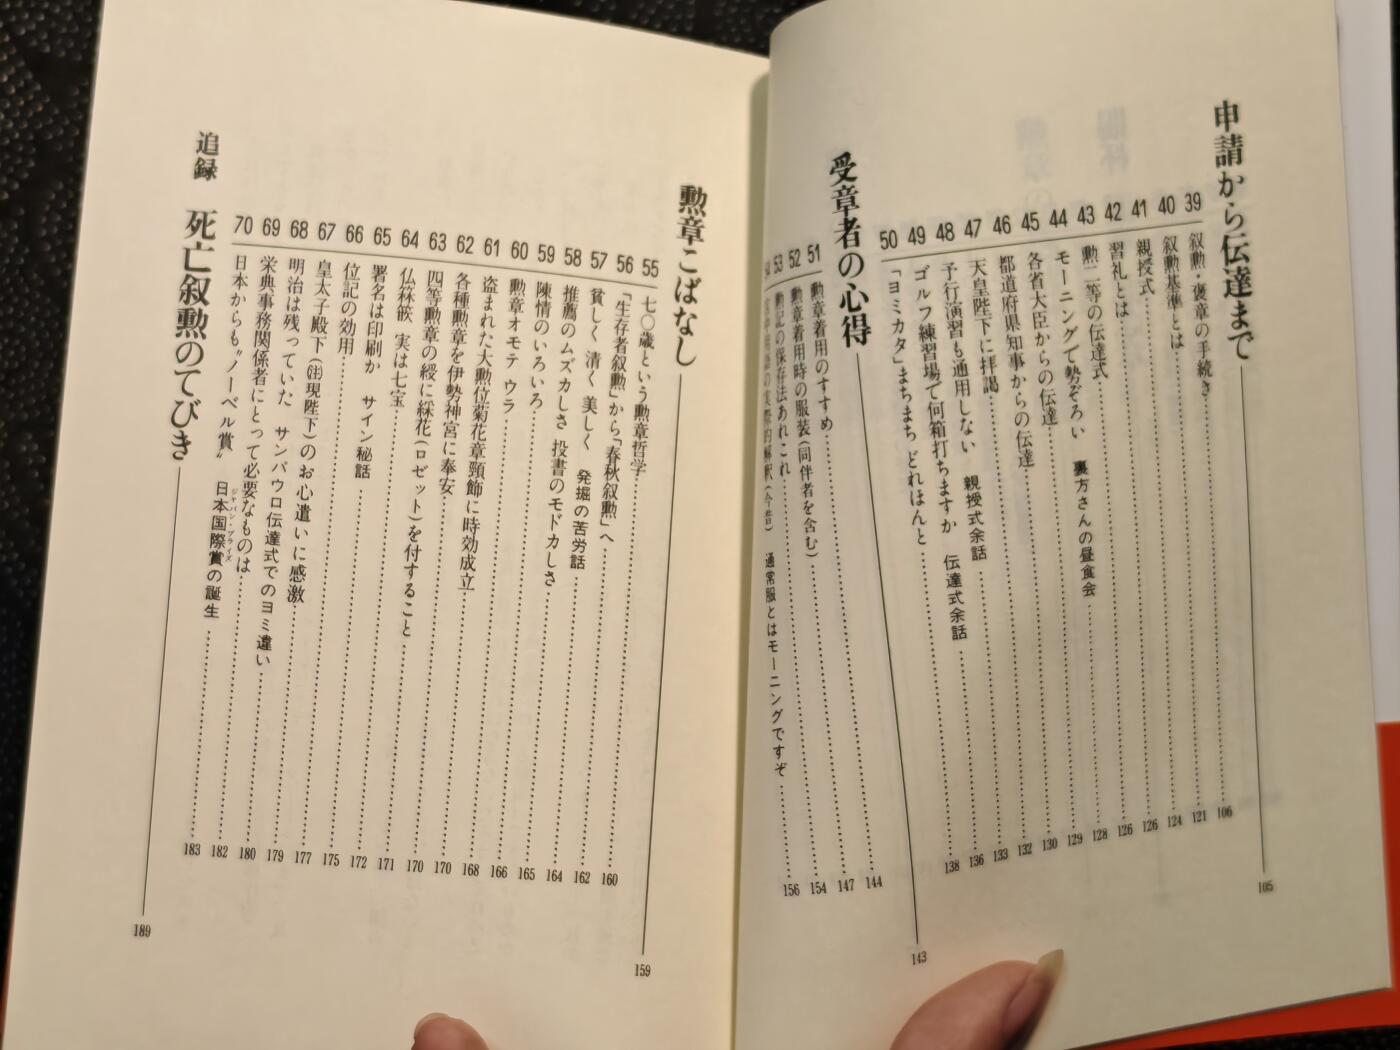 申請から伝達まで 105
39 叙勲・褒章の手続き 106
40 叙勲基準とは 121
41 親授式 124
42 習礼とは 126
43 勲二等の伝達式 126
44 モーニングで勢ぞろい 裏方さんの昼食会 128
45 各省大臣からの伝達 129
46 都道府県知事からの伝達 130
47 天皇陛下に拝謁 132
48 予行演習も通用しない 親授式余話 133
49 ゴルフ練習場で何箱打ちますか 伝達式余話 136
50 「ヨミカタ」まちまち どれほんと 138
受章者の心得 143
51 勲章着用のすすめ 144
52 勲章着用時の服装(同伴者を含む) 147
53 勲記の保存法あれこれ 154
54 用語の実際的解釈(今昔) 通常服とはモーニングですぞ 156
勲章こばなし 159
55 七〇歳という勲章哲学 160
56 「生存者叙勲」から「春秋叙勲」へ 162
57 貧しく 清く 美しく 発掘の苦労話 164
58 推薦のムズカしさ 投書のモドカしさ 165
59 陳情のいろいろ 166
60 勲章オモテ ウラ 168
61 盗まれた大勲位菊花章頸飾に時効成立 170
62 各種勲章を伊勢神宮に奉安 170
63 四等勲章の綬に綵花(ロゼット)を付すること 171
64 仏箖篏 実は七宝 172
65 署名は印刷か サイン秘話 175
66 位記の効用 177
67 皇太子殿下(註現陛下)のお心遣いに感激 179
68 明治は残っていた サンパウロ伝達式でのヨミ違い 180
69 栄典事務関係者にとって必要なものは 182
70 日本からも〝ノーベル賞〟 日本国際賞の誕生 183
ジャパン・プライズ
追録 死亡叙勲のてびき 189